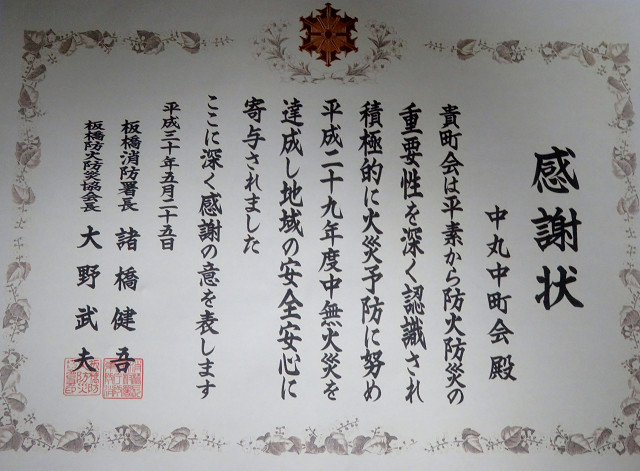 感謝状
中丸中町会殿
貴町会は平素から防火防災の
重要性を深く認識され
積極的に火災予防に努め
平成二十九年度中無火災を
達成し地域の安全安心に
寄与されました
ここに深く感謝の意を表します
平成三十年五月二十五日
板橋消防署長 諸橋健吾
板橋防火防災協会長 大野武夫